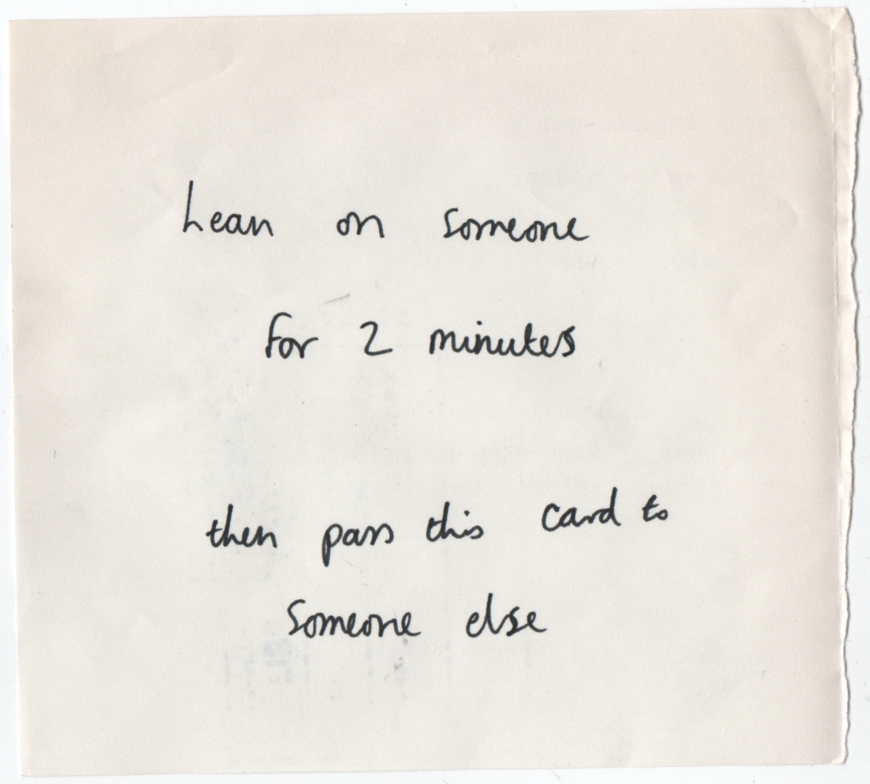 Lean on someone
for 2 minutes
then pass this card to
someone else